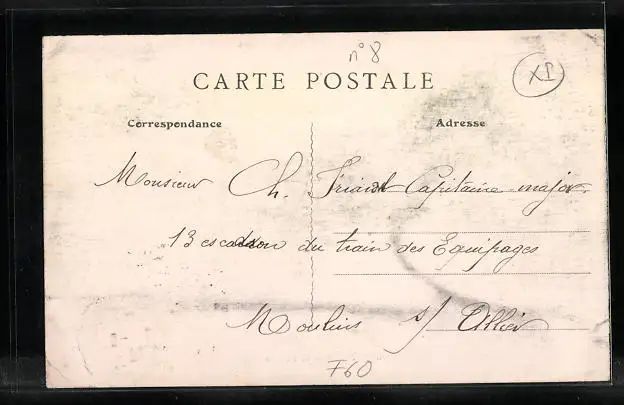 n° 8
XI
CARTE POSTALE
Correspondance
Adresse
Monsieur Ch. Friant Capitaine major
13 escadron du train des Equipages
Moulins s/ Allier
F60